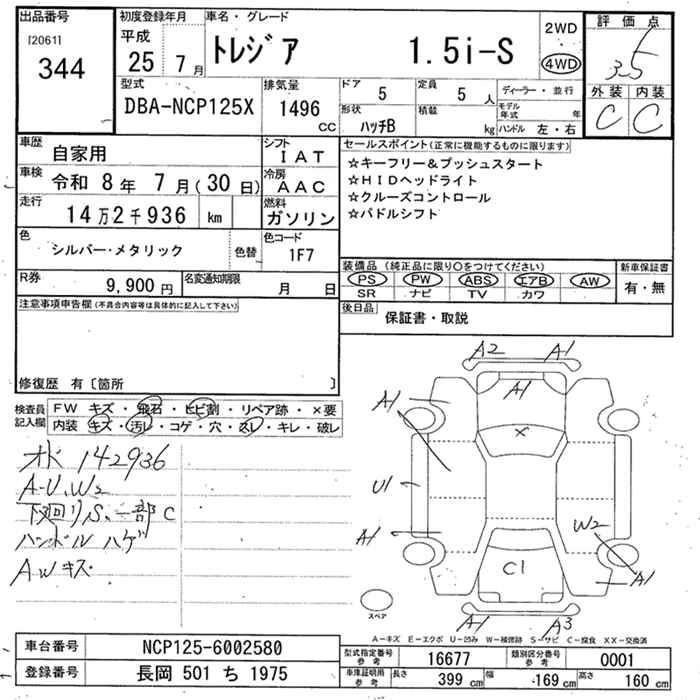 出品番号
[2061]
344
初度登録年月
平成
25 7月
車名・グレード
トレジア 1.5i-S
2WD
4WD
評価点
3.5
外装 内装
C C
型式
DBA-NCP125X
排気量
1496 CC
ドア 5
定員 5 人
形状 ハッチB
積載 kg
ディーラー・並行
モデル年式 年
ハンドル 左・右
車歴 自家用
シフト IAT
車検 令和 8年 7月(30日)
冷房 AAC
走行 14万2千936 km
燃料 ガソリン
色 シルバー・メタリック
色替
色コード 1F7
R券 9,900円
名変通知期限 月 日
セールスポイント(正常に機能するものに限ります)
☆キーフリー&プッシュスタート
☆HIDヘッドライト
☆クルーズコントロール
☆パドルシフト
装備品(純正品に限り○をつけてください)
PS PW ABS エアB AW
SR ナビ TV カワ
新車保証書
有・無
後日品 保証書・取説
注意事項申告欄(不具合内容等は具体的に記入して下さい)
修復歴 有〔箇所 〕
検査員記入欄
FW キズ・飛石・ヒビ割・リペア跡・×要
内装 キズ・汚レ・コゲ・穴・スレ・キレ・破レ
142936
A-U、W2
下廻りS、一部C
ハンドルハゲ
AWキズ
A2 A1
A1
A1
×
U1
A1
W2
C1
A1
A1 A3
スペア
A-キズ E-エクボ U-凹み W-補修跡 S-サビ C-腐食 XX-交換済
車台番号 NCP125-6002580
登録番号 長岡 501 ち 1975
型式指定番号 参考 16677
類別区分番号 参考 0001
車庫証明用 参考
長さ 399 cm
幅 169 cm
高さ 160 cm